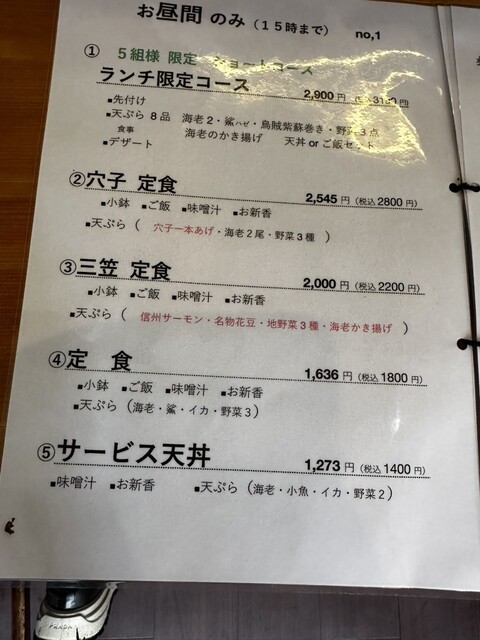 お昼間 のみ（１５時まで） no,1
① ５組様 限定 ショートコース
ランチ限定コース 2,900 円
■先付け
■天ぷら ８品 海老２・鯊ハゼ・烏賊紫蘇巻き・野菜３点
食事 海老のかき揚げ 天丼 or ご飯セット
■デザート
②穴子 定食 2,545 円（税込 2800 円）
■小鉢 ■ご飯 ■味噌汁 ■お新香
■天ぷら（ 穴子一本あげ・海老２尾・野菜３種 ）
③三笠 定食 2,000 円（税込 2200 円）
■小鉢 ■ご飯 ■味噌汁 ■お新香
■天ぷら（ 信州サーモン・名物花豆・地野菜３種・海老かき揚げ ）
④定 食 1,636 円（税込 1800 円）
■小鉢 ■ご飯 ■味噌汁 ■お新香
■天ぷら（海老・鯊・イカ・野菜３）
⑤サービス天丼 1,273 円（税込 1400 円）
■味噌汁 ■お新香 ■天ぷら（海老・小魚・イカ・野菜２）